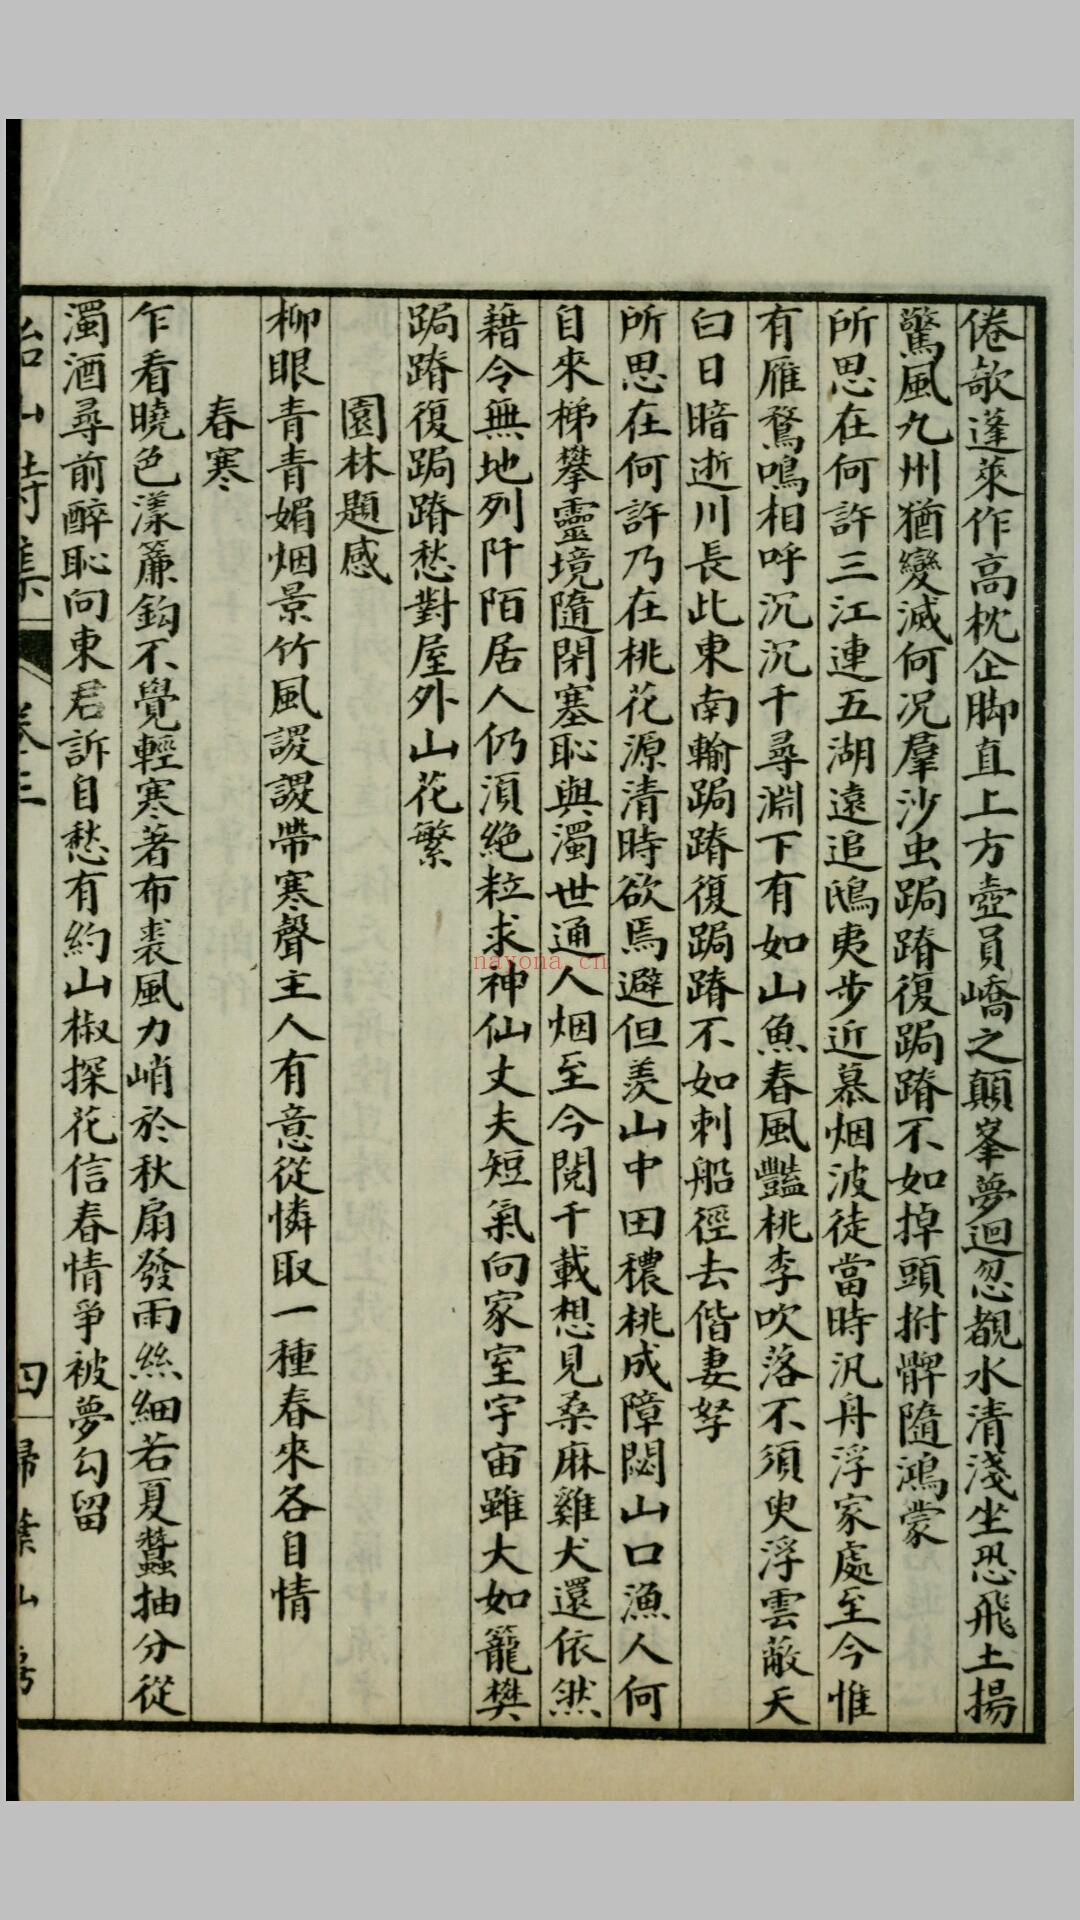 倦欹蓬萊作高枕企脚直上方壺員嶠之顛峯夢迴忽覩水清淺坐恐飛土揚
驚風九州猶變滅何况羣沙虫跼蹐復跼蹐不如掉頭拊髀隨鴻蒙
所思在何許三江連五湖遠追鴟夷步近慕烟波徒當時汎舟浮家處至今惟
有雁鶩鳴相呼沉沉千尋淵下有如山魚春風豔桃李吹落不須臾浮雲敝天
白日暗逝川長此東南輸跼蹐復跼蹐不如刺船徑去偕妻孥
所思在何許乃在桃花源清時欲焉避但羨山中田穠桃成障閟山口漁人何
自來梯攀靈境隨閉塞恥與濁世通人烟至今閱千載想見桑麻雞犬還依然
藉令無地列阡陌居人仍須絶粒求神仙丈夫短氣向家室宇宙雖大如籠樊
跼蹐復跼蹐愁對屋外山花繁
園林題感
柳眼青青媚烟景竹風謖謖帶寒聲主人有意從憐取一種春來各自情
春寒
乍看曉色漾簾鈎不覺輕寒著布裘風力峭於秋扇發雨絲細若夏蠶抽分從
濁酒尋前醉恥向東君訴自愁有約山椒探花信春情爭被夢勾留
詩集 卷三 四 掃葉山房
nayona.cn